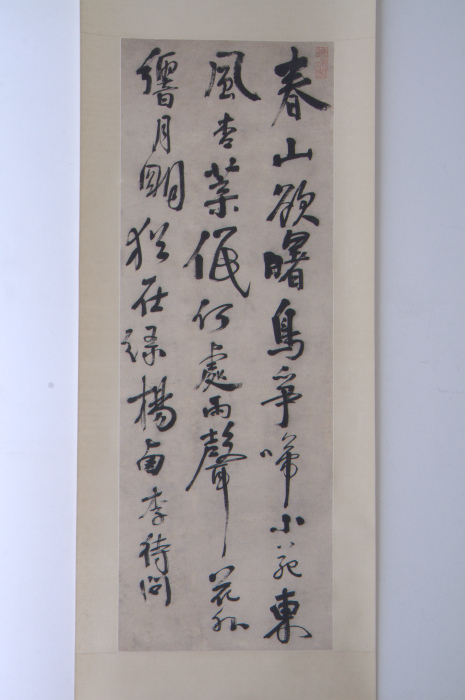 春山欲曙鳥爭啼小苑東
風杏葉低何處雨聲花外
響月明猶在綠楊西李待問